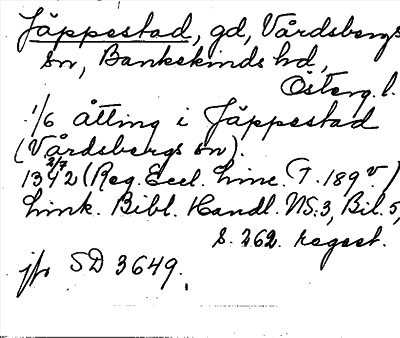 Jäppestad, gd, Vårdsbergs
sn, Bankekinds hd,
Österg. l.
1/6 åtting i Jäppestad
(Vårdsbergs sn).
1342 2/7 (Reg. Eccl. Linc. T. 189 v.)
Link. Bibl. Handl. NS:3, Bil. 5,
s. 262. regest.
jfr SD 3649.